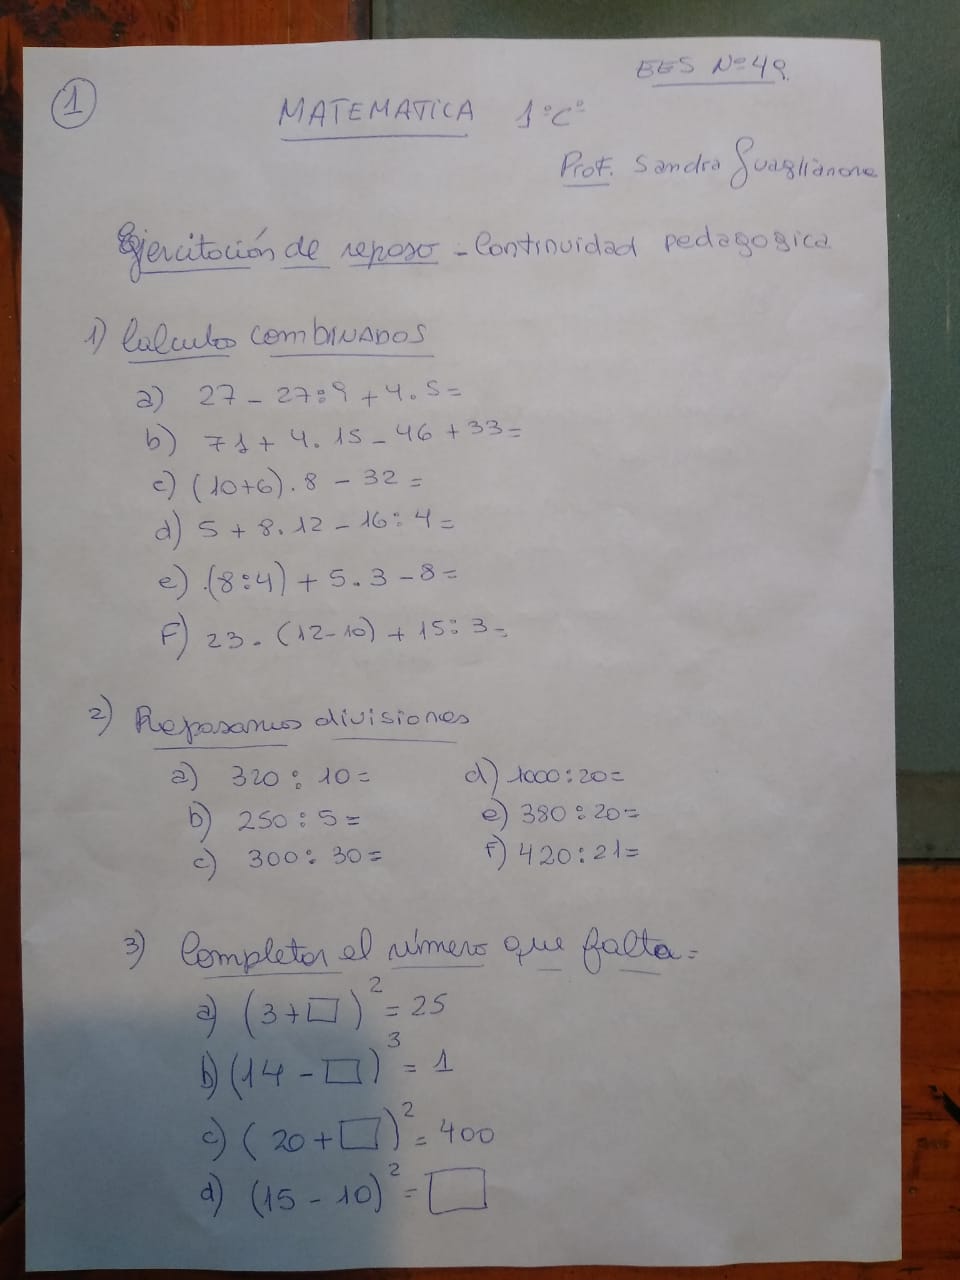 EES Nº 49.
1
MATEMATICA 1°C°
Prof. Sandra Guaglianone
Ejercitación de reposo - Continuidad pedagogica
1) Calculos COMBINADOS
a) 27 - 27:9 + 4.5=
b) 71 + 4. 15 - 46 + 33=
c) (10+6).8 - 32 =
d) 5 + 8.12 - 16:4=
e) .(8:4) + 5.3 - 8=
F) 23. (12-10) + 15:3=
2) Repasamos divisiones
a) 320 : 10= d) 1000:20=
b) 250 : 5= e) 380:20=
c) 300: 30= f) 420:21=
3) Completar el número que falta=
a) (3+□)² = 25
b) (14 - □)³ = 1
c) (20+□)² = 400
d) (15 - 10)² = □